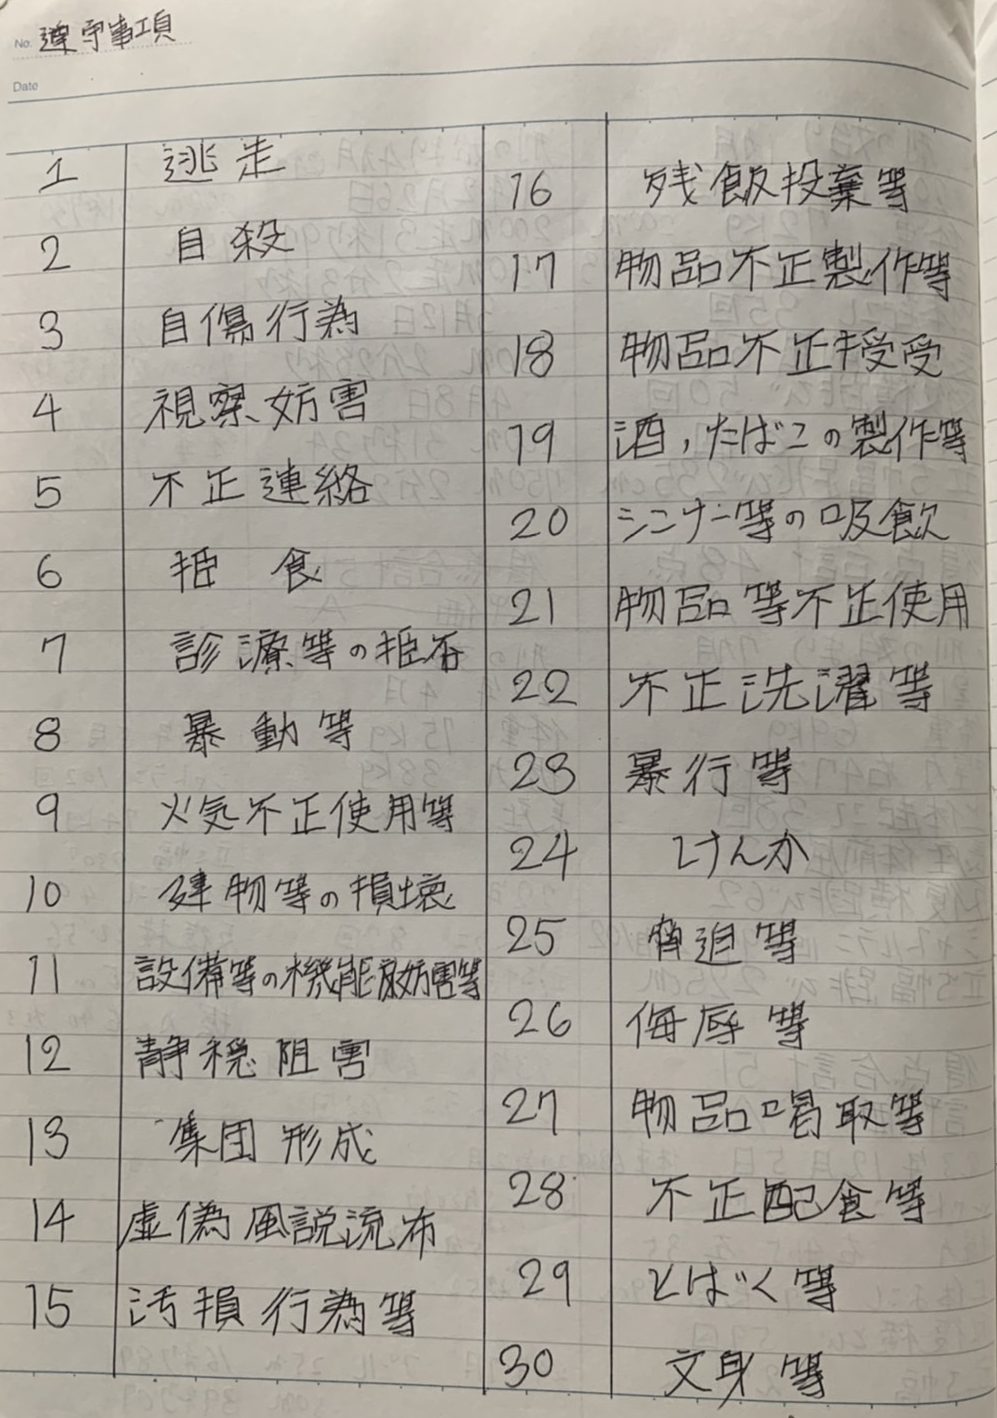 No. 遵守事項
Date
1 逃走
2 自殺
3 自傷行為
4 視察妨害
5 不正連絡
6 拒食
7 診療等の拒否
8 暴動等
9 火気不正使用等
10 建物等の損壊
11 設備等の機能妨害等
12 静穏阻害
13 集団形成
14 虚偽風説流布
15 汚損行為等
16 残飯投棄等
17 物品不正製作等
18 物品不正授受
19 酒,たばこの製作等
20 シンナー等の吸飲
21 物品等不正使用
22 不正洗濯等
23 暴行等
24 けんか
25 脅迫等
26 侮辱等
27 物品喝取等
28 不正配食等
29 とばく等
30 文身等